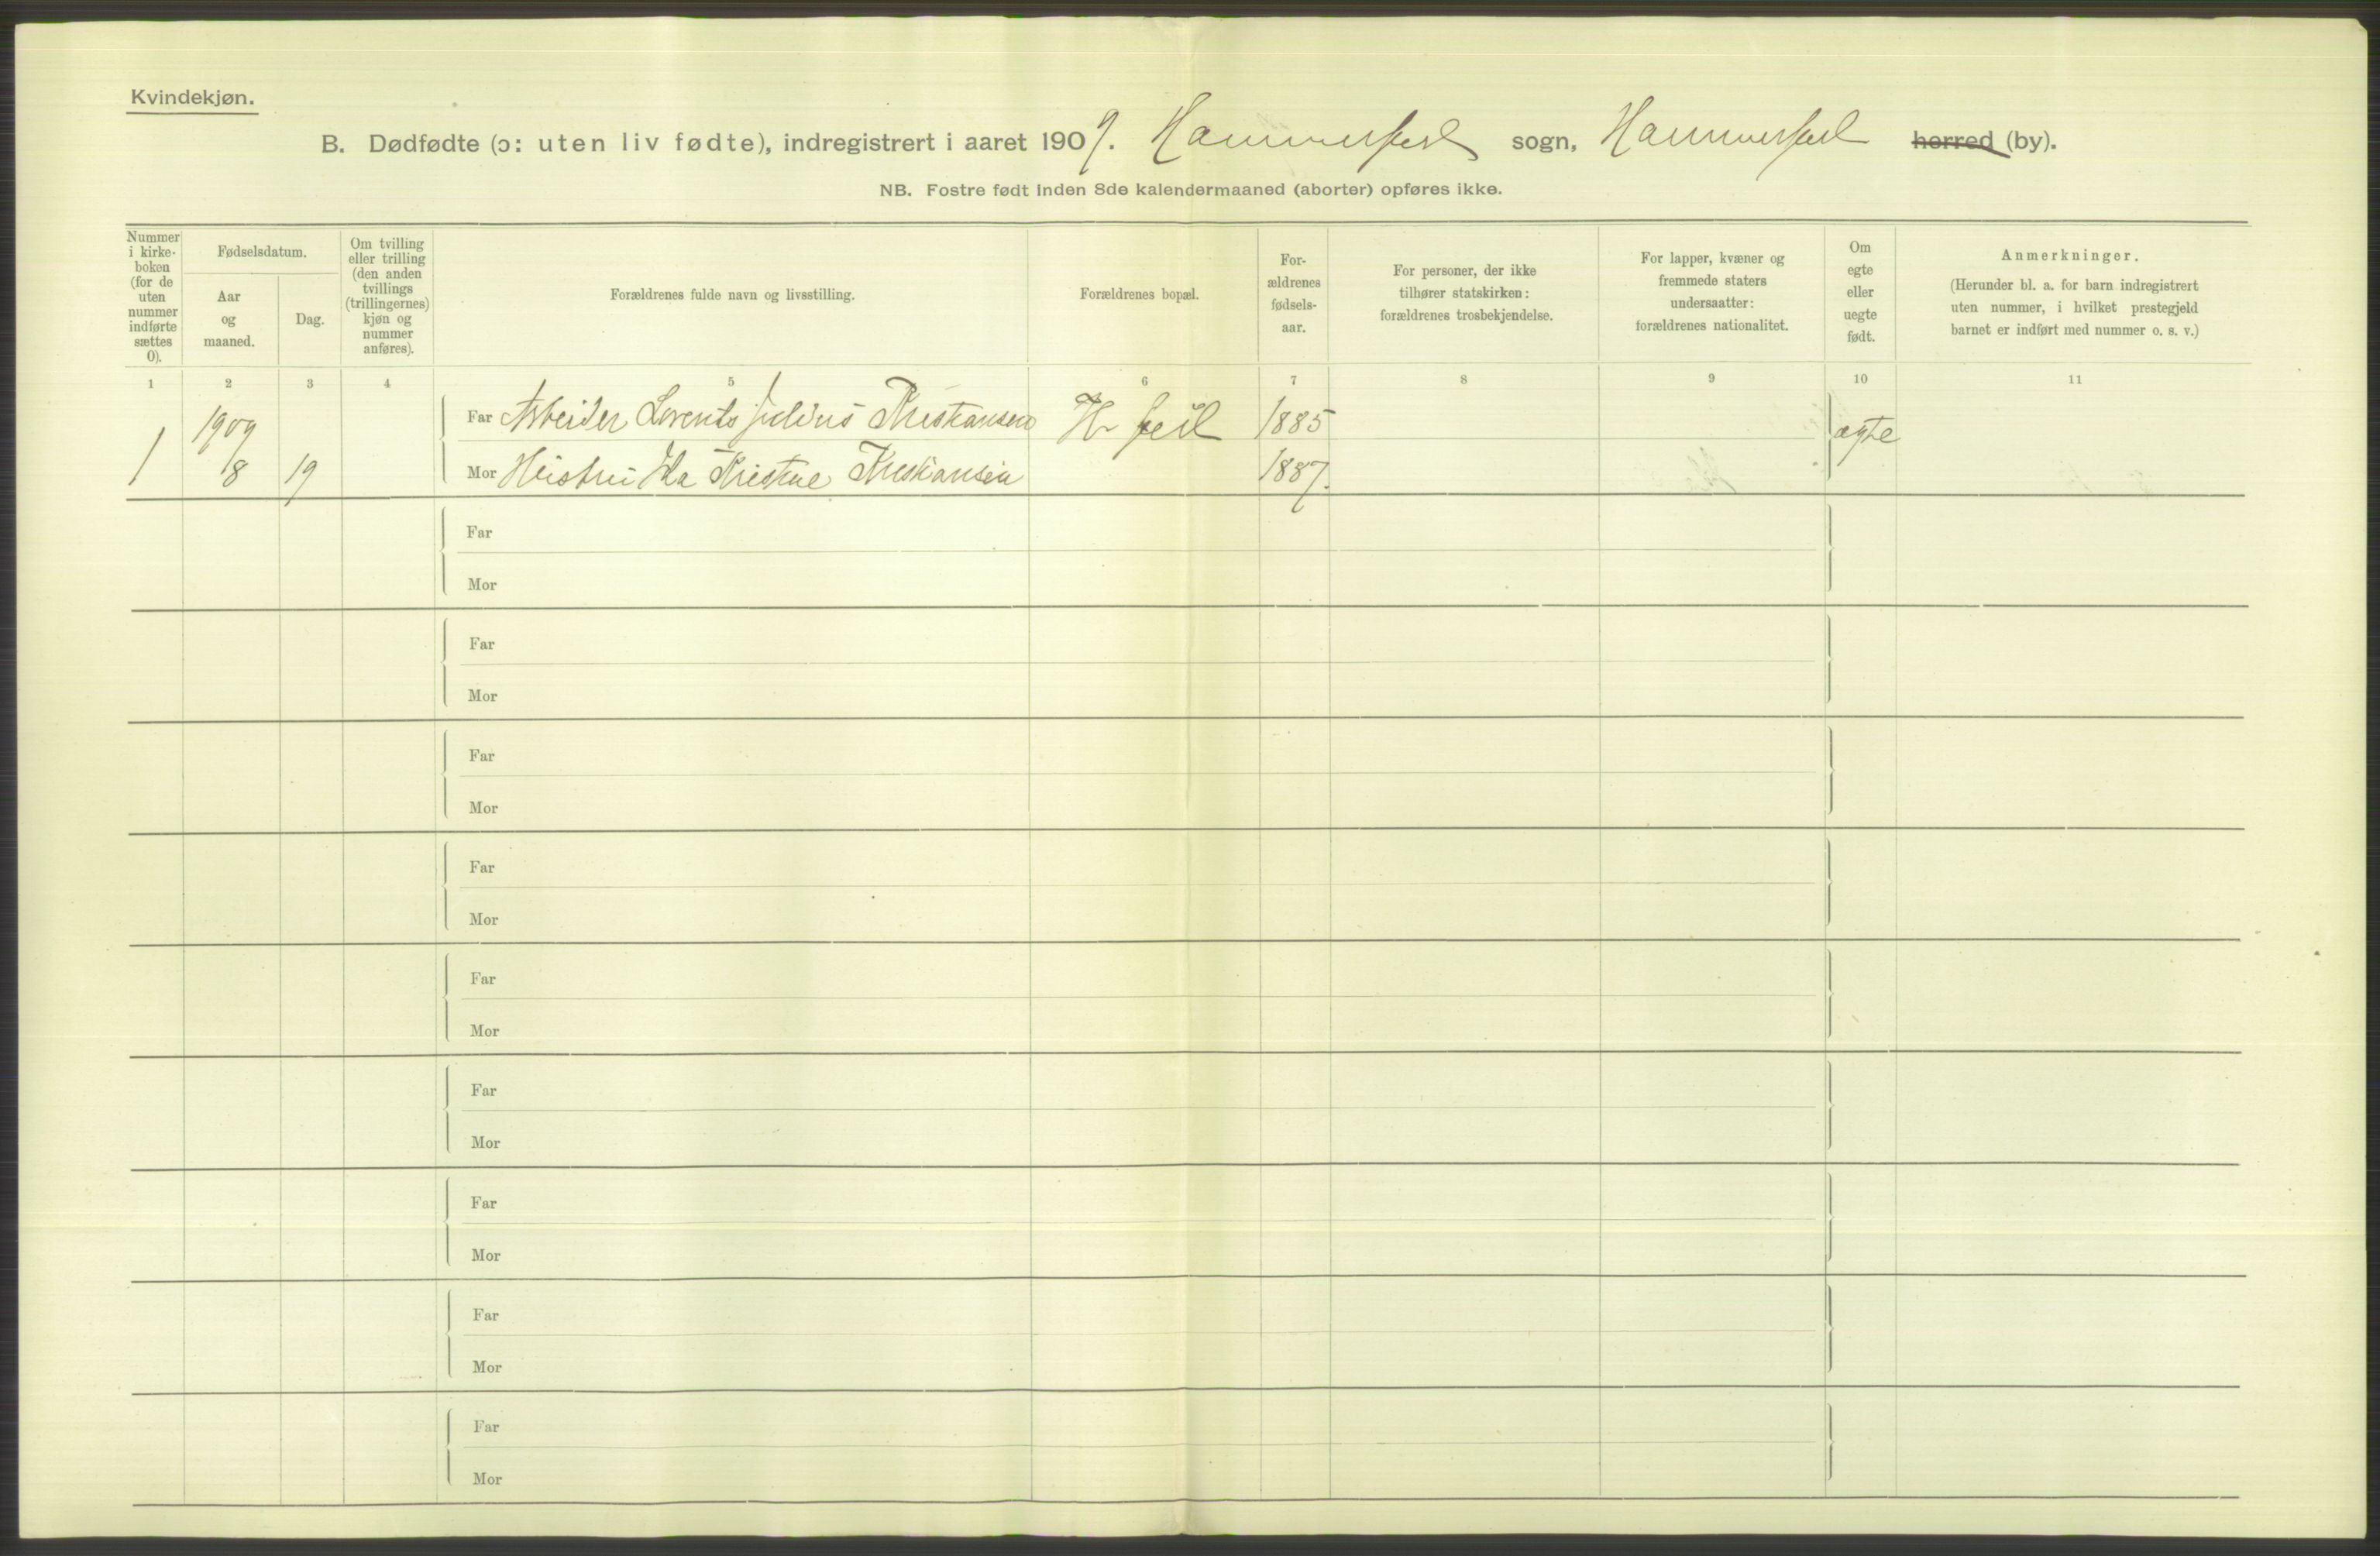 Kvindekjøn.
B. Dødfødte (ɔ: uten liv fødte), indregistrert i aaret 1909. Hammerfest sogn, Hammerfest herred (by).
NB. Fostre født inden 8de kalendermaaned (aborter) opføres ikke.
Nummer i kirke- boken (for de uten nummer indførte sættes 0).
Fødselsdatum.
Aar og maaned.
Dag.
Om tvilling eller trilling (den anden tvillings (trillingernes) kjøn og nummer anføres).
Forældrenes fulde navn og livsstilling.
Forældrenes bopæl.
For- ældrenes fødsels- aar.
For personer, der ikke tilhører statskirken: forældrenes trosbekjendelse.
For lapper, kvæner og fremmede staters undersaatter: forældrenes nationalitet.
Om egte eller uegte født.
Anmerkninger.
(Herunder bl. a. for barn indregistrert uten nummer, i hvilket prestegjeld barnet er indført med nummer o. s. v.)
1 2 3 4 5 6 7 8 9 10 11
1909
Far Arbeider Lorents Julius Kristiansen H. fest 1885 ægte
1 8 19 Mor Hustru Ida Kristine Kristiansen 1887.
Far
Mor
Far
Mor
Far
Mor
Far
Mor
Far
Mor
Far
Mor
Far
Mor
Far
Mor
Far
Mor